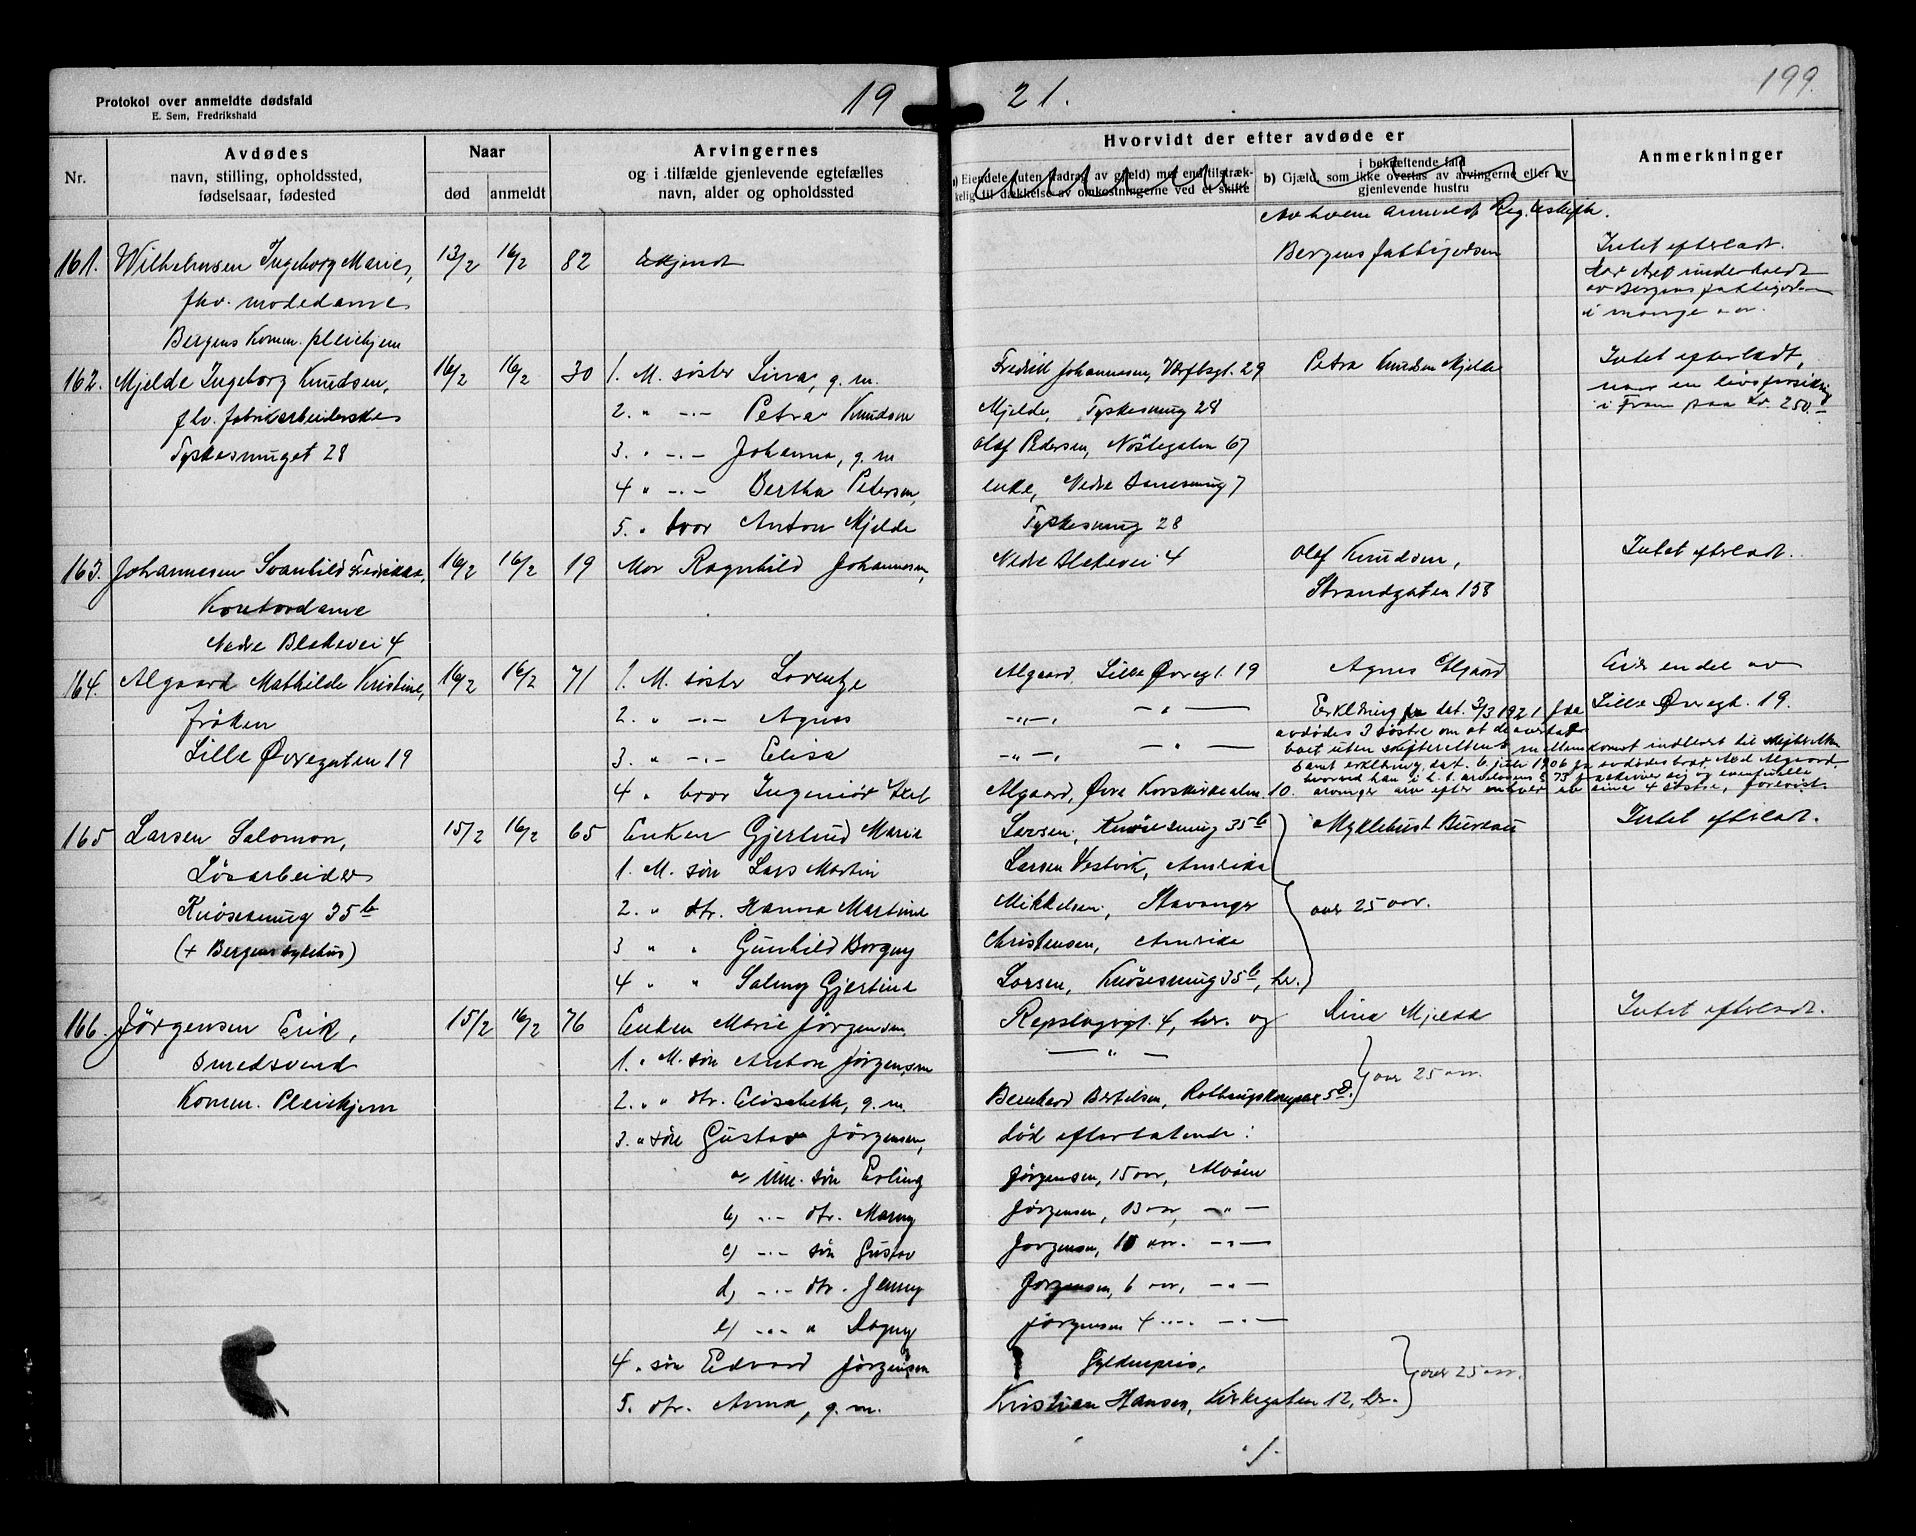 Protokol over anmeldte dødsfald
E. Sem, Fredrikshald
19 21.
199.
Nr.
Avdødes
navn, stilling, opholdssted,
fødselsaar, fødested
Naar
død anmeldt
Arvingernes
og i tilfælde gjenlevende egtefælles
navn, alder og opholdssted
Hvorvidt der efter avdøde er
a) Eiendele (uten fradrag av gjæld) mer end tilstræk-
kelig til dækkelse av omkostningerne ved et skifte
i bekræftende fald
b) Gjæld, som ikke overtas av arvingerne eller av
gjenlevende hustru
Anmerkninger
Av hvem anmeldt Reg.
161. Wilhelmsen Ingeborg Marie, 13/2 16/2 82 Ukjendt Bergens fattigvæsen Intet efterladt.
fhv. modedame
Har været underholdt
av Bergens fattigvæsen
i mange aar.
Bergens Komm. pleiehjem
162. Mjelde Ingeborg Knudsen, 16/2 16/2 30 1. M. søster Sina, g. m. Fredrik Johannessen, Verftsgt. 29 Petra Knudsen Mjelde Intet efterladt,
fhv. fabrikarbeiderske 2. " -.- Petra Knudsen Mjelde, Tyskesmug 28
en livsforsikring
i Fram paa kr. 250.-
Tyskesmuget 28 3. " -.- Johanna, g. m Olaf Pedersen, Nøstegaten 67
4 " -.- Bertha Petersen, enke, Nedre 7
5. " bror Anton Mjelde Tyskesmug 28
163. Johannesen Svanhild Fredrikke, 16/2 16/2 19 Mor Ragnhild Johannesen, Nedre Blekevei 4 Olaf Knudsen, Intet efterladt.
Kontordame Strandgaten 158
Nedre Blekevei 4
164. Algaard Mathilde Kristine, 16/2 16/2 71 1. M. søster Lorentze Algaard Lille Øvregt. 19 Agnes Algaard Eier en del av
frøken 2. " -.- Agnes -"-, -"- Erklæring dat. 3/3 1921 fra Lille Øvregt. 19.
avdødes 3 søstre om at de overtar
Lille Øvregaten 19 3. " -.- Elise -"-, -"- boet uten skifterettens mellemkomst indlevert til skifteretten
samt erklæring, dat. 6 juli 1906 fra avdødes bror Axel Algaard,
hvorved han i h. t. arvelovens § 73 fraskriver sig og eventuelle
4 " bror Ingeniør Axel Algaard, Øvre Korskirkealm. 10. arvinger arv efter enhver av sine 4 søstre,
165 Larsen Salomon, 15/2 16/2 65 Enken Gjertrud Marie Larsen, Knøsesmug 35 b Myklebust Bureau Intet efterladt.
Løsarbeider 1. M. søn Lars Martin Larsen Vestvik, Amerika
Knøsesmug 35 b 2. " dtr. Hanna Martine Mikkelsen, Stavanger over 25 aar.
(+ Bergens sykehus) 3 " " Gunhild Borgny Christensen, Amerika
4 " " Salmy Gjertine Larsen, Knøsesmug 35 b, hr.
166. Jørgensen Erik, 15/2 16/2 76 Enken Marie Jørgensen, Repslagergt. 4, hr. og Dina Mjelde Intet efterladt.
smedsvend 1. " M. søn Anton Jørgensen — " —
over 25 aar.
Komm. Pleiehjem 2. " " dtr. Elisabeth, g. m. Bernhard Bertelsen, 5 d.
3. " søn Gustav Jørgensen, død efterlatende:
a) Um. søn Erling Jørgensen, 15 aar, Alvøen
b) -.- dtr. Marny Jørgensen, 13 aar, -"-
c) -.- søn Gustav Jørgensen, 10 aar. -"-
d) -.- dtr. Jenny Jørgensen, 6 aar, -"-
e) -.- " Dagny Jørgensen 4 -.- -"-
4. søn Edvard Jørgensen Gyldenpris,
over 25 aar.
5. dtr. Anna, g. m. Kristian Hansen, Kirkegaten 12, hr.
./.